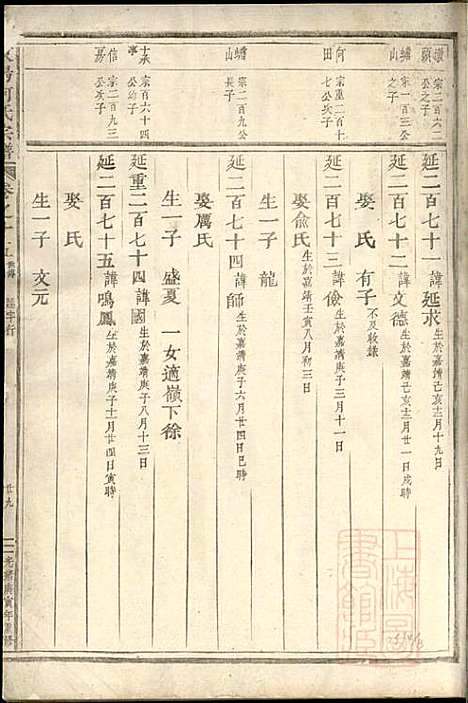 宗二百六二
公之子
蟠山
宗一百三公
之子
何田
宗重二百十
七公次子
蟠山
宗二百九公
長子
十承
宗百六十四
公幼子
信房
宗二百九三
公次子
延二百七十一諱延求 生於嘉靖己亥十二月十九日
延二百七十二諱文德 生於嘉靖己亥十二月廿一日戌時
娶氏 有子 不及收錄
延二百七十三諱儉 生於嘉靖庚子三月十一日
娶俞氏 生於嘉靖壬寅八月初三日
生一子 龍
延二百七十四諱師 生於嘉靖庚子六月廿四日巳時
娶厲氏
生一子 盛夏 一女適嶺下徐
延重二百七十四諱國 生於嘉靖庚子八月十三日
延二百七十五諱鳴鳳 生於嘉靖庚子十一月廿四日寅時
娶氏
生一子 文元
何氏宗譜
卷之十
延字行
廿九
光緒庚寅年重修
上海圖書館藏